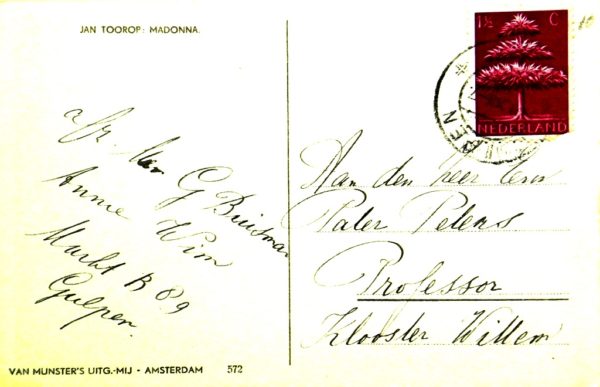 JAN TOOROP: MADONNA.
afz. 
G Buisman
Annie Wim
Markt B 89
Gulpen.
VAN MUNSTER'S UITG.-MIJ - AMSTERDAM 572
1½ C
NEDERLAND
PEN
Aan den heer Eerw
Pater Peters
Professor
Klooster Willem